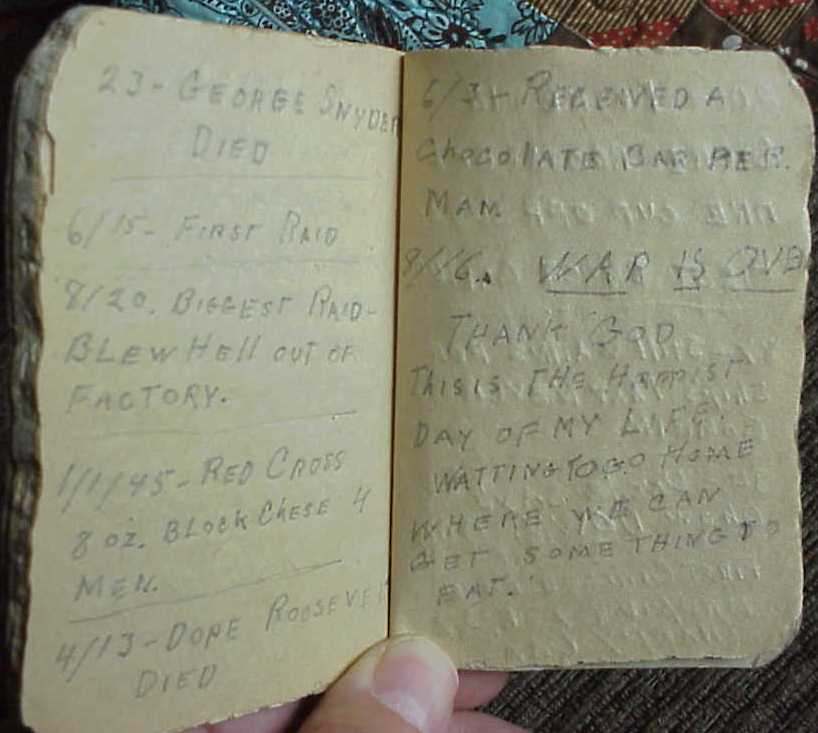 23- GEORGE SNYDER
DIED
6/15- FIRST RAID
8/20. BIGGEST RAID-
BLEW HEll OUT OF
FACTORY.
1/1/45- RED CROSS
8 OZ. BLOCK CHESE 4
MEN.
4/13-DOPE ROOSEVELT
DIED
RECEIVED A
CHOCOLATE BAR PER.
MAN
8/16. WAR IS OVER
THANK GOD
THIS IS THE HAPPIST
DAY OF MY LIFE.
WATTING TO GO HOME
WHERE WE CAN
GET SOMETHING TO
EAT.